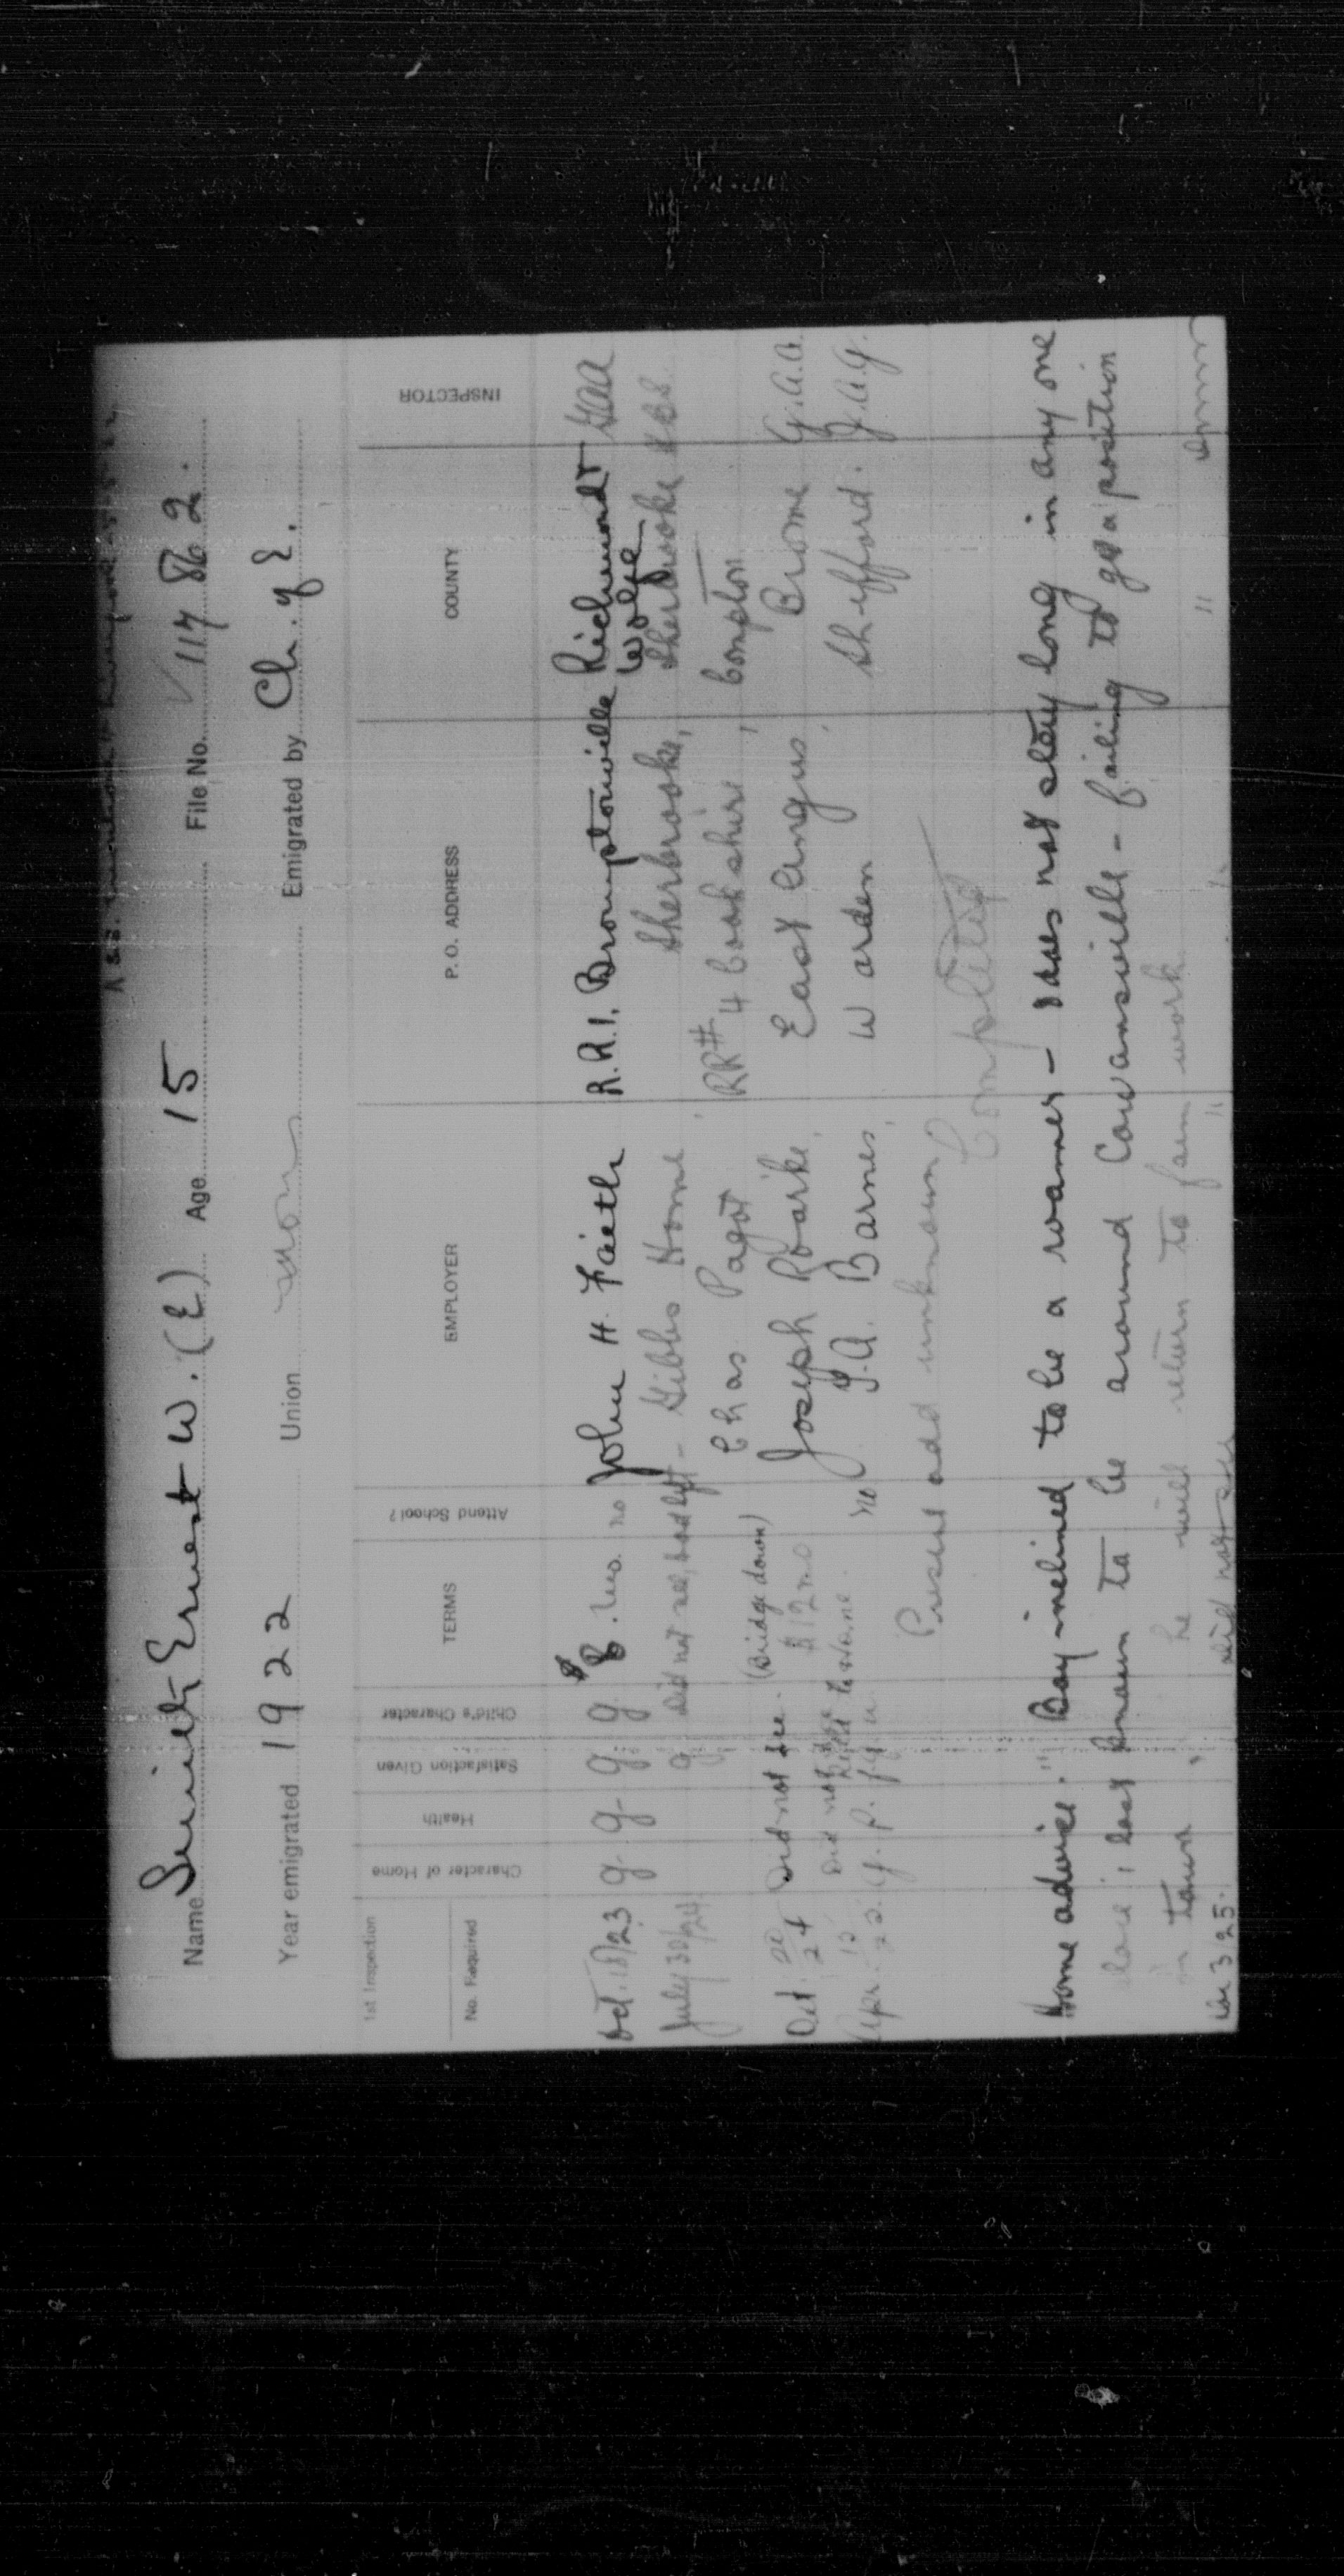 Name Smith Ernest W. (E) Age 15 File No. 117862.
Year emigrated 1922 Union Emigrated by Ch. of E.
1st Inspection
No. Required
Character of Home Health Satisfaction Given Child's Character TERMS Attend School? EMPLOYER P. O. ADDRESS COUNTY INSPECTOR
Oct. 18/23 g g g. g. $8. mo. no John H. Faith R.R.1. Bromptonville Richmond &
Wolfe
July 30/24 g did not see, had left - Gibbs Home Sherbrooke, Sherbrooke
Chas Pagot RR# 4 Cookshire, Compton
Oct 24 Did not see. (Bridge down) Joseph Roarke, East Angus, Brome G.A.A.
Did not see $12 mo
Apr. no J.A. Barnes, Warden Shefford.
Present add unknown
Completed
Home advise. "Boy inclined to be a roamer - does not stay long in any one
place; last known to be around Cowansville - failing to get a position
in town, he will return to farm work
Dec 3 25. did not see " " "